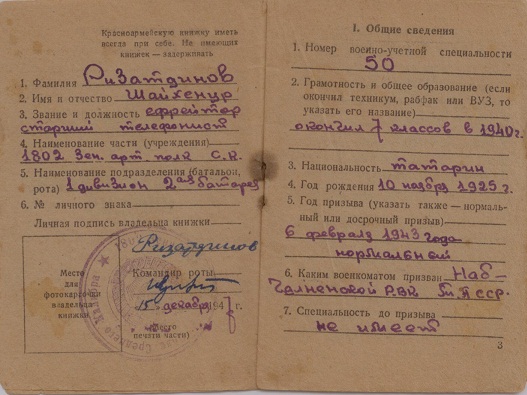 Красноармейскую книжку иметь
всегда при себе. Не имеющих
книжек — задерживать
1. Фамилия Ризатдинов
2. Имя и отчество Шайхенур
3. Звание и должность ефрейтор
старший телефонист
4. Наименование части (учреждения)
1802 Зен. арт. полк С.К.
5. Наименование подразделения (батальон,
рота) 1 дивизион 2ая батарея
6. № личного знака
Личная подпись владельца книжки
Ризатдинов
Место
для
фотокарточки
владельца
книжки
Командир роты
15 декабря 1947 г.
(Место
печати части)
I. Общие сведения
1. Номер военно-учетной специальности
50
2. Грамотность и общее образование (если
окончил техникум, рабфак или ВУЗ, то
указать его название)
окончил 7 классов в 1940г.
3. Национальность татарин
4. Год рождения 10 ноября 1925 г.
5. Год призыва (указать также — нормаль-
ный или досрочный призыв)
6 февраля 1943 года
нормальный
6. Каким военкоматом призван Наб-
Челненской РВК Т.П ССР.
7. Специальность до призыва
не имеет
3